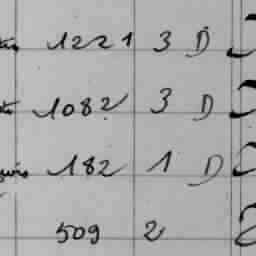 1221 3 D
1082 3 D
182 1 D
509 2